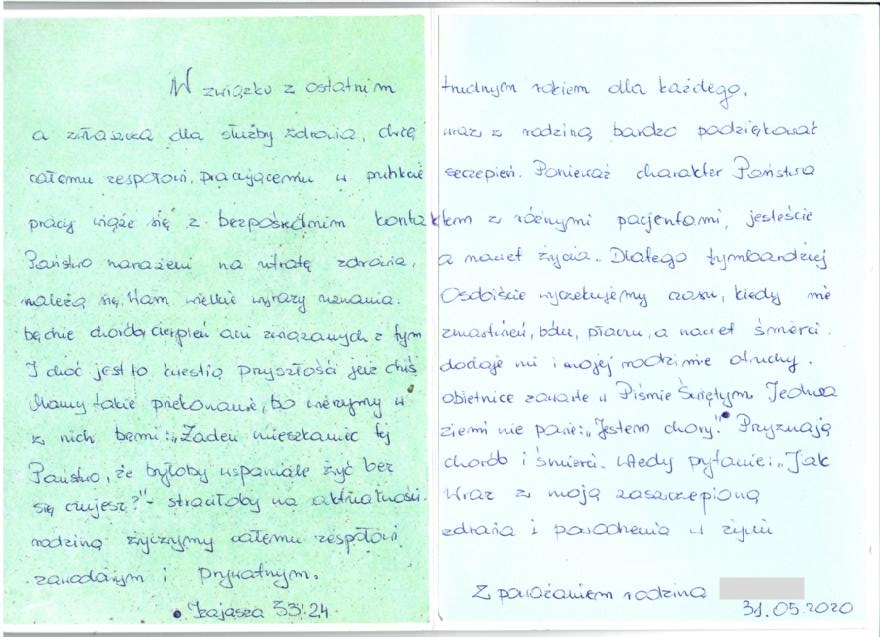 W związku z ostatnim trudnym rokiem dla każdego,
a zwłaszcza dla służby zdrowia, chcę wraz z rodziną bardzo podziękować
całemu zespołowi, pracującemu w punkcie szczepień. Ponieważ charakter Państwa
pracy wiąże się z bezpośrednim kontaktem z różnymi pacjentami, jesteście
Państwo narażeni na utratę zdrowia, a nawet życia. Dlatego tymbardziej
należą się Wam wielkie wyrazy uznania. Osobiście wyczekujemy czasu, kiedy nie
będzie chorób, cierpień ani związanych z tym zmartwień, bólu, płaczu, a nawet śmierci.
I choć jest to kwestią przyszłości już dziś dodaje mi i mojej rodzinie otuchy.
Mamy takie przekonanie, bo wierzymy w obietnice zawarte w Piśmie Świętym. Jedna
z nich brzmi: „Żaden mieszkaniec tej ziemi nie powie: „Jestem chory". Przyznają
Państwo, że byłoby wspaniale żyć bez chorób i śmierci. Wtedy pytanie: „Jak
się czujesz?" - straciłoby na aktualności. Wraz z moją zaszczepioną
rodziną życzymy całemu zespołowi zdrowia i powodzenia w życiu
zawodowym i prywatnym.
Z poważaniem rodzina
• Izajasza 33:24
31.05.2020